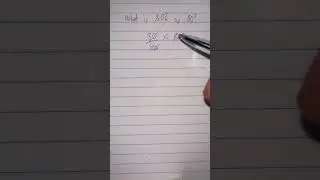 What is 30% of 80?
30 ×
100